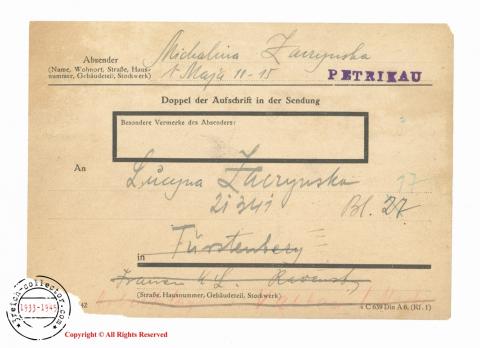 Absender
(Name, Wohnort, Straße, Haus-
nummer, Gebäudeteil, Stockwerk)
Michalina Zaczynska
1 Maja 11-15
PETRIKAU
Doppel der Aufschrift in der Sendung
Besondere Vermerke des Absenders:
An
Lucyna Zaczynska
21341
17
Bl. 27
in
Fürstenberg
Frauen K L. Ravensb
(Straße, Hausnummer, Gebäudeteil, Stockwerk)
C 639 Din A 6, (Kl. 1)
3reich-collector.com
1933-1945
Copyright © All Rights Reserved